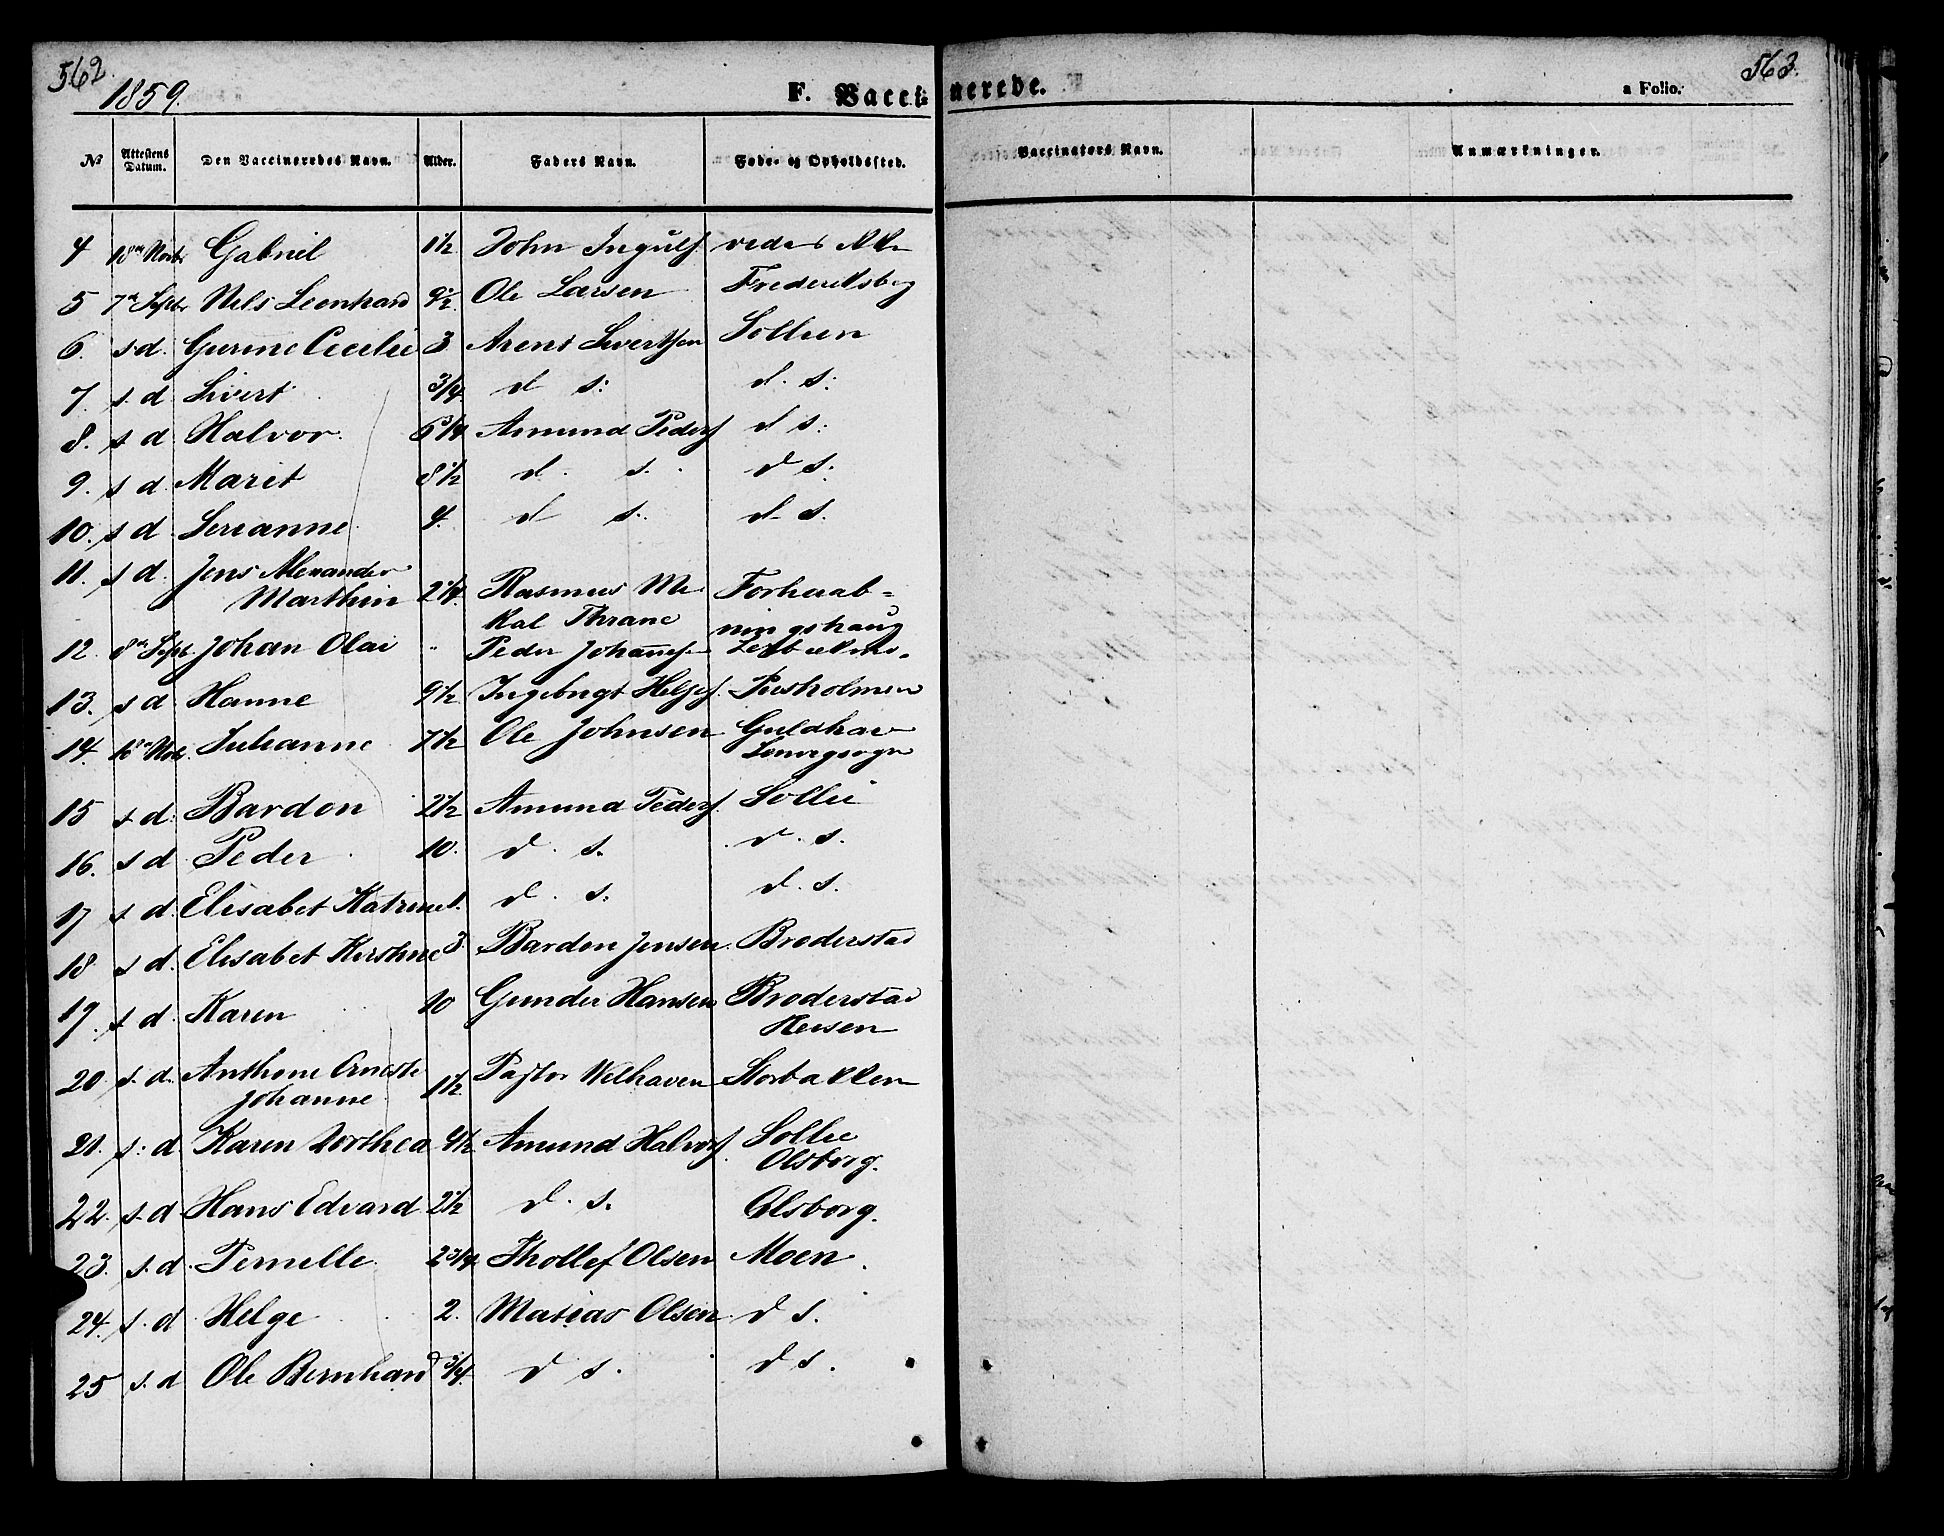 562. 1859. F. Vaccinerede. a Folio. 563.
No Attestens Datum. Den Vaccineredes Navn. Alder. Faders Navn. Føde- og Opholdssted. Vaccinators Navn. Anmærkninger.
4 Gabriel 1 1/2 John Ingulfs
5 7de Septr Nils Leonhard 9 1/2 Ole Larsen Frederiksberg
6. s d. Gurine Cecilie 3 Arent Sivertsen Sollien
7. s. d Sivert 3/4 d s: d. s:
8. s d Halvor 6 1/4 Amund Peders d s:
9. s d. Marit 8 1/2 d. s. d s.
10. s d. Serianne 4. d s. d s.
11. s d. Jens Alexander
Marthin 2 1/4. Rasmus Mi Forhaab=
kal Thrane ningshaug
12. 8de Sept. Johan Olai " Peder Johannes
13. s d Hanne 9 1/2 Ingebrigt Helges.
14. Julianne 7 1/2 Ole Johnsen Guldhav
15 s d: Bardon 2 1/2 Amund Peders. Sollie
16. s d Peder 10. d. s. d. s.
17 s d. Elisabet Katrine 1. d. s. d. s.
18 s d. Elisabet Kirstine 3. Bardon Jensen Broderstad
19. s d. Karen 10 Gunder Hansen Broderstad
20. s. d. Anthone Erneste
Johanne 1 1/2. Pastor Welhaven Storbakken
21. s: d Karen Dorthea 4 1/2 Amund Halvors. Sollie
Olsborg.
22. s. d Hans Edvard 2 1/2 d. s. Olsborg.
23. s. d Pernelle 2 3/4 Thollef Olsen Moen.
24. s. d Helge 2. Matias Olsen d s.
25 s. d Ole Bernhard 3/4. d s. d s.